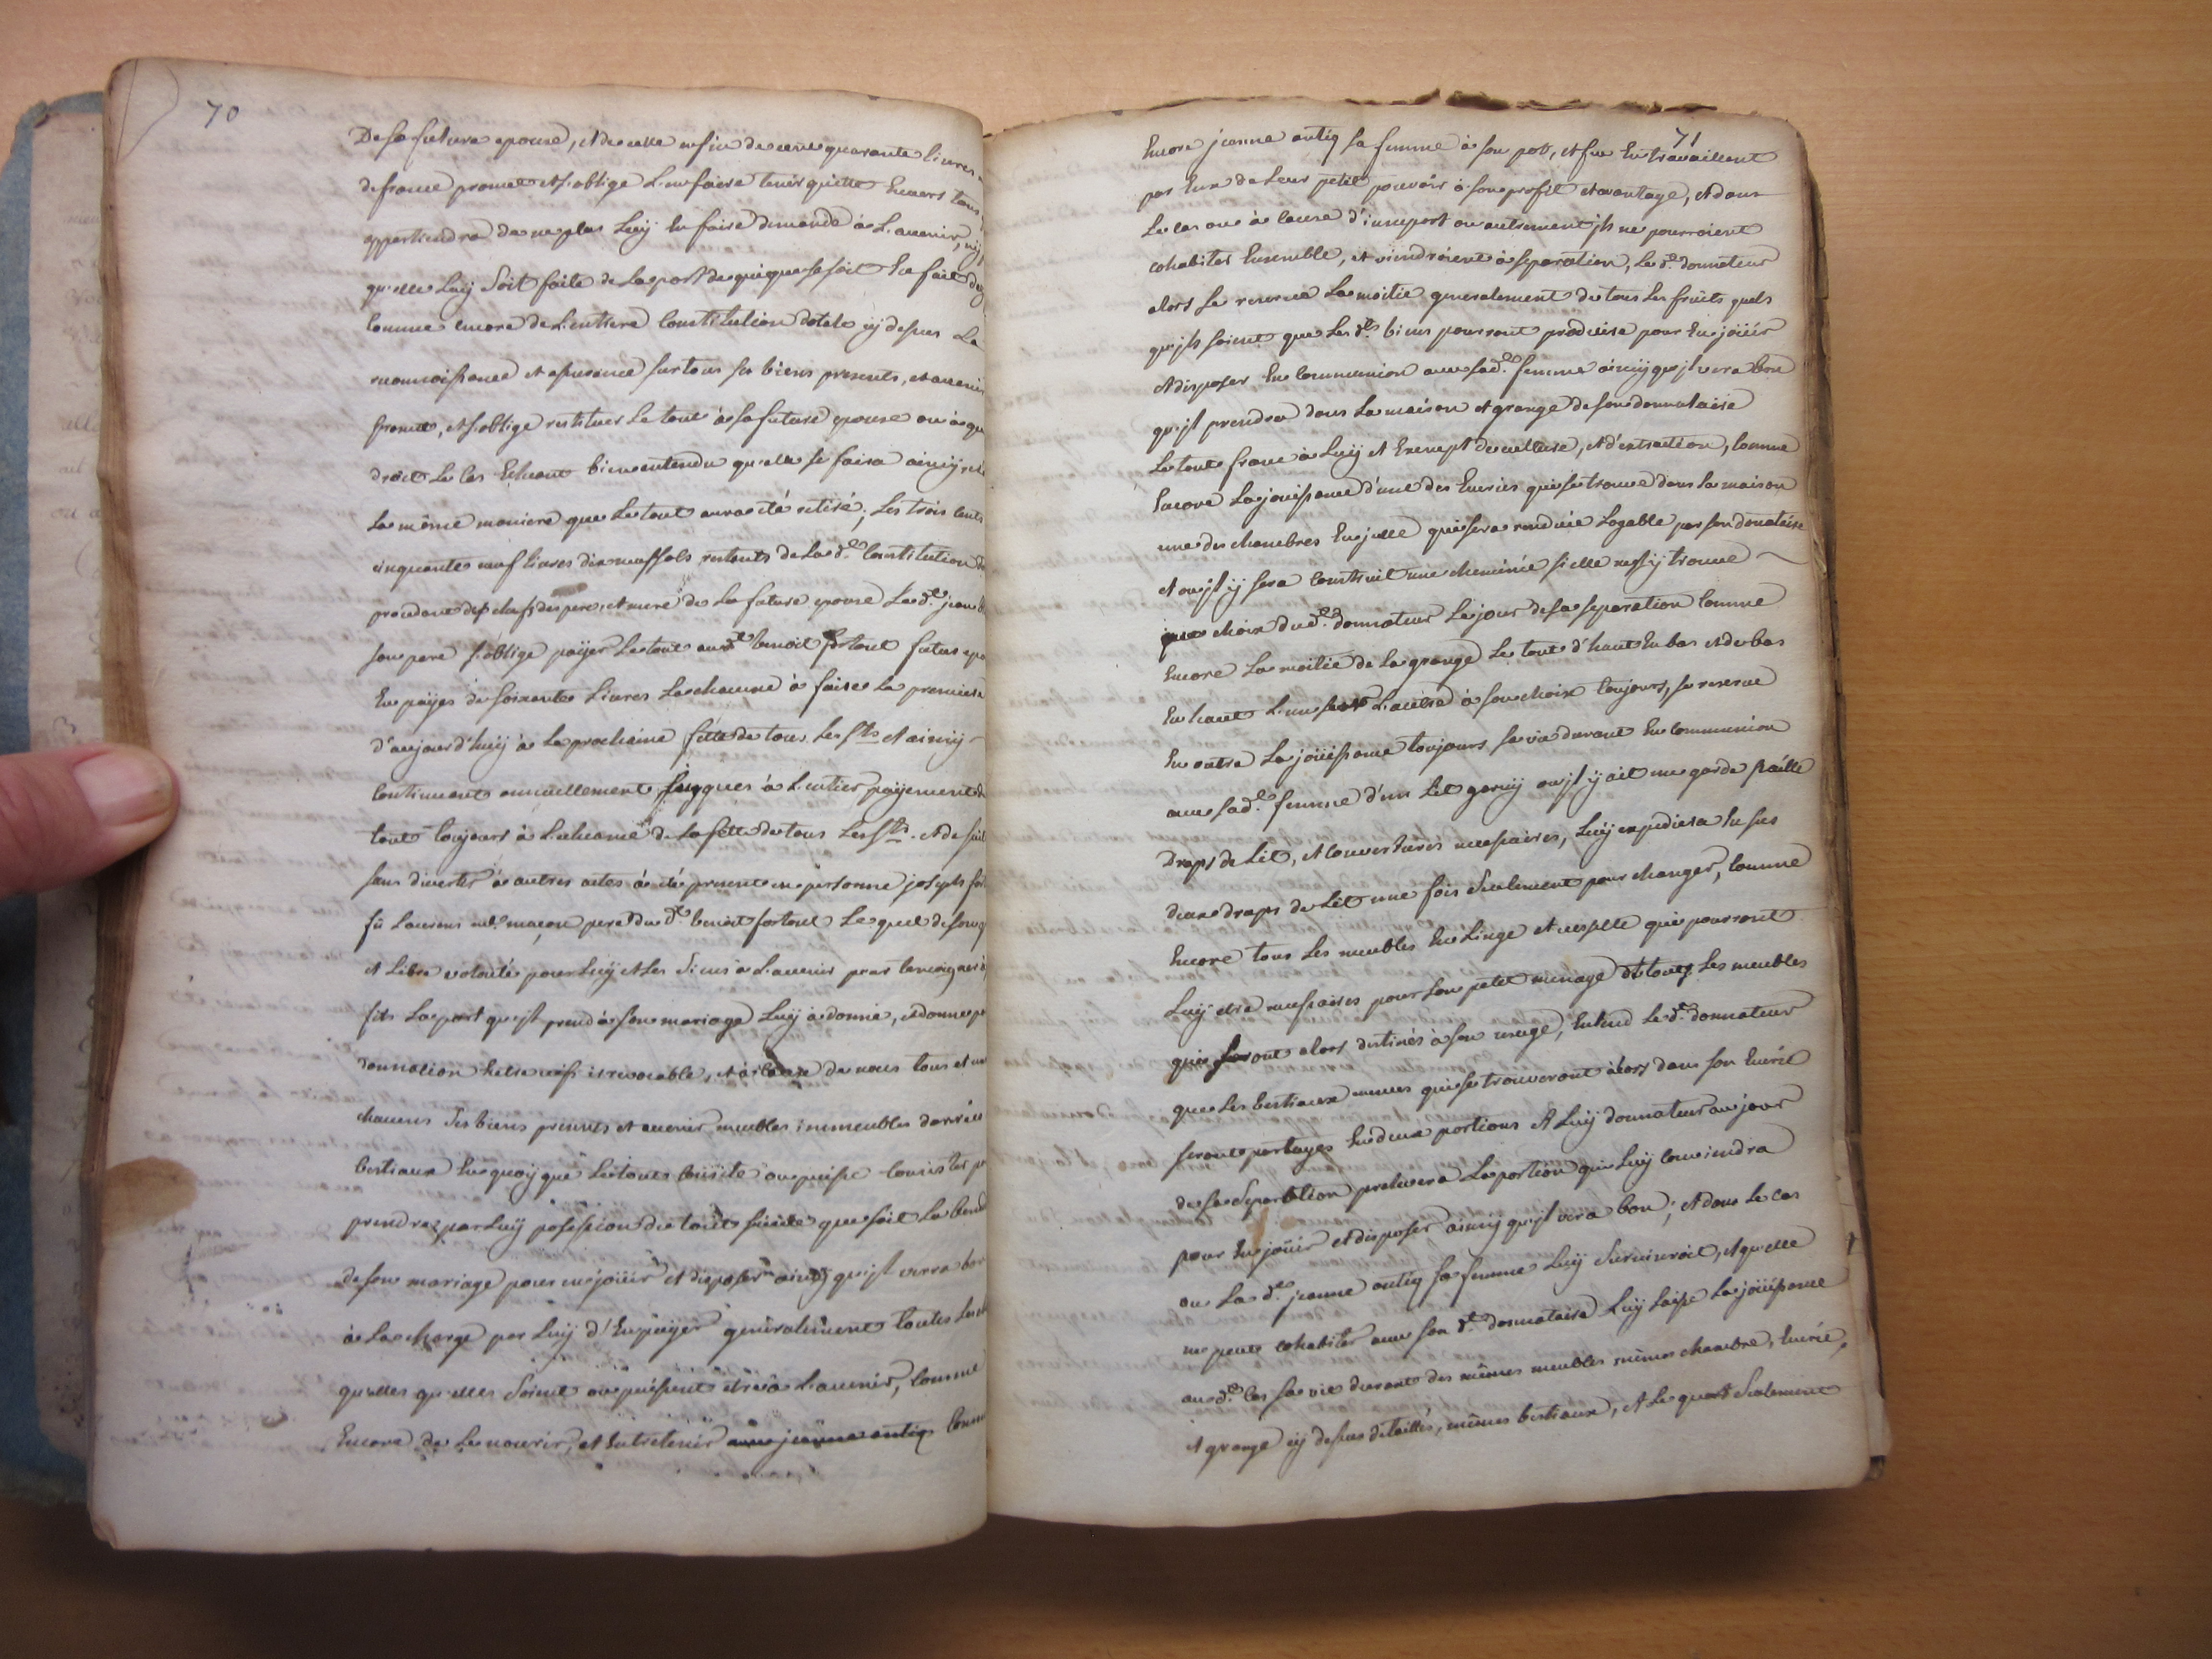 70
De sa future epouse, et de celle en fin de cent quarante livres
de france promet et s'oblige l'en faire tenir quitte envers tous
appartiendra de ne plus luy en faire demande à l'avenir, ny
qu'elle luy soit faite de la part de qui que se soit en fait
comme encore de l'entiere constitution dotale cy dessus la
reconnoissance et assurance sur tous ses biens presents, et avenir
promet, et s'oblige restituer le tout à sa future epouse ou à qui
droit le cas echeant bien entendu qu'elle se faira ainsy
la même maniere que le tout aura été retiré; les trois cents
cinquante neuf livres dix neuf sols restants de la d.e constitution
procedant des chefs des pere, et mere de la future epouse le d.t jean
son pere s'oblige païer le tout au d.t benoit fortout futur
en païes de soixante livres la chacune à faire la premiere
d'aujourd'huy à la prochaine fette de tous les s.ts et ainsy
continuant annuellement jusques à l'entier païement
tout toujours à l'echeance de la fette de tous les s.ts. et de suite
sans divertir à autres actes à été present en personne joseph
fû laurens m.e maçon pere du d.t benoit fortout le quel de son
et libre volonté pour luy et les siens à l'avenir pour temoigner à
fils la part qu'jl prend à son mariage luy à donné, et donne
donnation entre vifs irrevocable, et à cause de nous tous et un
chacuns ses biens presents et avenir meubles immeubles danrées
bestiaux en quoy que le tout consiste ou puisse consister
prendra par luy possession du tout suitte que soit la bened
de son mariage pour en joüir et disposer ainsy qu'jl verra bon
à la charge par luy d'en païer generalement toutes les
quelles qu'elles soient ou puissent etre à l'avenir, comme
encore de le nourir, et entretenir avec jeanne antiq comme
71
encore jeanne antiq sa femme à son pot, et feu en travaillent
par eux de leur petit pouvoir à son profit et avantage, et dans
le cas ou à cause d'insuport ou autrement jls ne pourroient
cohabiter ensemble, et viendroient à separation, le d.t donnateur
alors se reserve la moitié generalement de tous les fruits quels
qu'jls soient que les d.ts biens pourront produire pour en joüir
et disposer en communion avec sa d.e femme ainsy qu'jl vera bon
qu'jl prendra dans la maison et grange de son donnataire
le tout franc à luy et exempt de culture, et d'extraction, comme
encore la jouissance d'une des ecuries qui se trouve dans la maison
une des chambres en jcelle qui sera renduie logable par son donnataire
et ou jl y sera construit une cheminée si elle ne s'y trouve
choix du d.t donnateur le jour de sa separation comme
encore la moitié de la grange le tout d'haut en bas et de bas
en haut l'un l'autre à son choix toujours, se reserve
en outre la joüissance toujours sa vie durant en communion
avec sa d.e femme d'un lit garny ou jl y ait une garde paille
draps de lit, et couvertures necessaires, luy expediera en sus
deux draps de lit une fois seulement pour changer, comme
encore tous les meubles en linge et vesselle qui pourront
luy etre necessaires pour son petit menage et tous les meubles
qui seront alors destinés à son usage, entend le d.t donnateur
que les bestiaux menus qui se trouveront alors dans son ecurie
seront partagés en deux portions et luy donnateur au jour
de sa separation prelevera la portion qui luy conviendra
pour en joüir et disposer ainsy qu'jl vera bon; et dans le cas
ou la d.e jeanne antiq sa femme luy surviveroit, et qu'elle
ne peut cohabiter avec son d.t donnataire luy laisse la joüissance
au d.t cas sa vie durant des mêmes meubles même chambre, ecurie,
et grange cy dessus detaillés, mêmes bestiaux, et le quart seulement